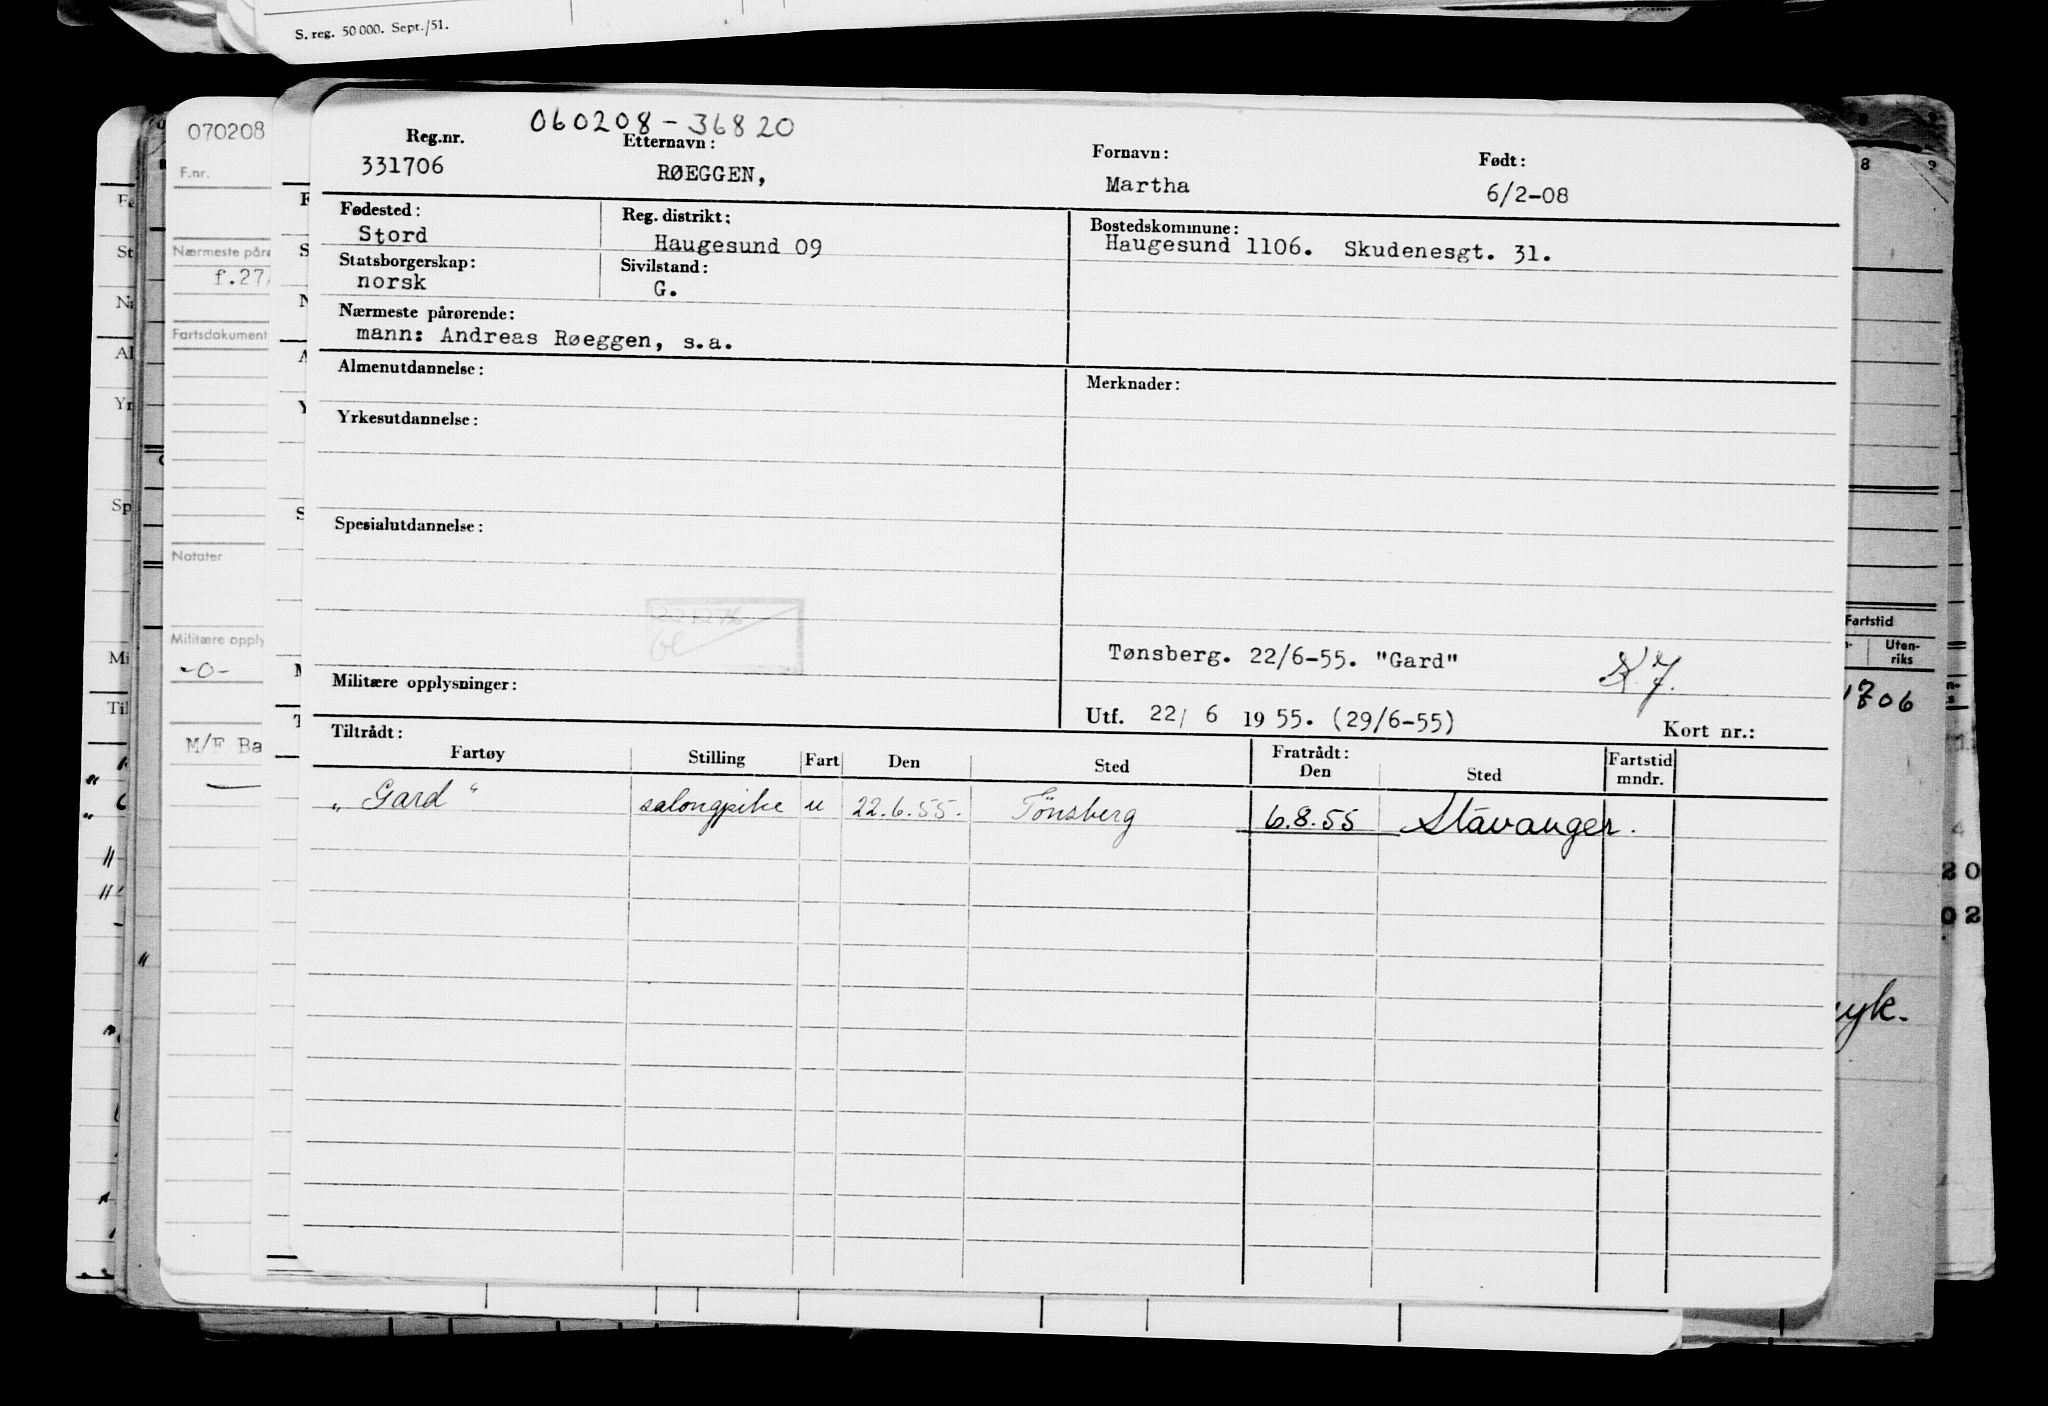 S. reg. 50 000. Sept./51.
070208
F.nr.
Nærmeste påre
f.27/
Fartsdokument
Notater
Militære opply
-o-
M/F Ba
060208-36820
Reg.nr. Etternavn: Fornavn: Født:
331706 RØEGGEN, Martha 6/2-08
Fødested: Reg. distrikt: Bostedskommune:
Stord Haugesund 09 Haugesund 1106. Skudenesgt. 31.
Statsborgerskap: Sivilstand:
norsk G.
Nærmeste pårørende:
mann: Andreas Røeggen, s.a.
Almenutdannelse: Merknader:
Yrkesutdannelse:
Spesialutdannelse:
Tønsberg. 22/6-55. "Gard"
Militære opplysninger:
Utf. 22/ 6 19 55. (29/6-55) Kort nr.:
Tiltrådt: Fratrådt: Fartstid
Fartøy Stilling Fart Den Sted Den Sted mndr.
"Gard" salongpike u 22.6.55. Tønsberg 6.8.55 Stavanger.
8 9
Fartstid
Uten-
riks
1706
20
02
yk.